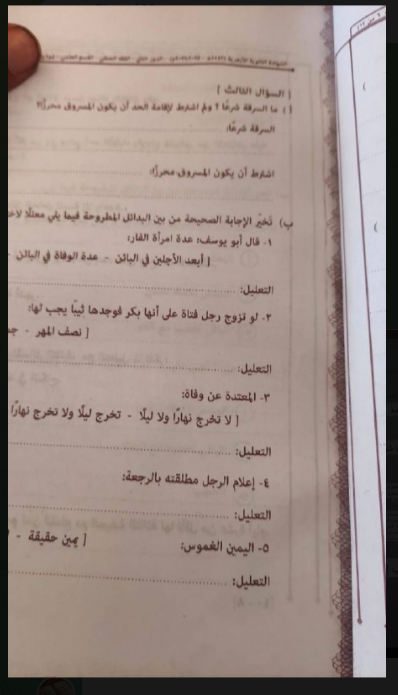 [ السؤال الثالث ]
أ ) ما السرقة شرعًا ؟ ولم اشترط لإقامة الحد أن يكون المسروق محرزًا؟
السرقة شرعًا:
اشترط أن يكون المسروق محرزًا:
ب) تَخيَّر الإجابة الصحيحة من بين البدائل المطروحة فيما يلي معللًا
١- قال أبو يوسف: عدة امرأة الفار:
[ أبعد الأجلين في البائن - عدة الوفاة في البائن -
التعليل:
٢- لو تزوج رجل فتاة على أنها بكر فوجدها ثيبًا يجب لها:
[ نصف المهر -
التعليل:
٣- المعتدة عن وفاة:
[ لا تخرج نهارًا ولا ليلًا - تخرج ليلًا ولا تخرج نهارًا
التعليل:
٤- إعلام الرجل مطلقته بالرجعة:
التعليل:
٥- اليمين الغموس:
[ يمين حقيقة -
التعليل: